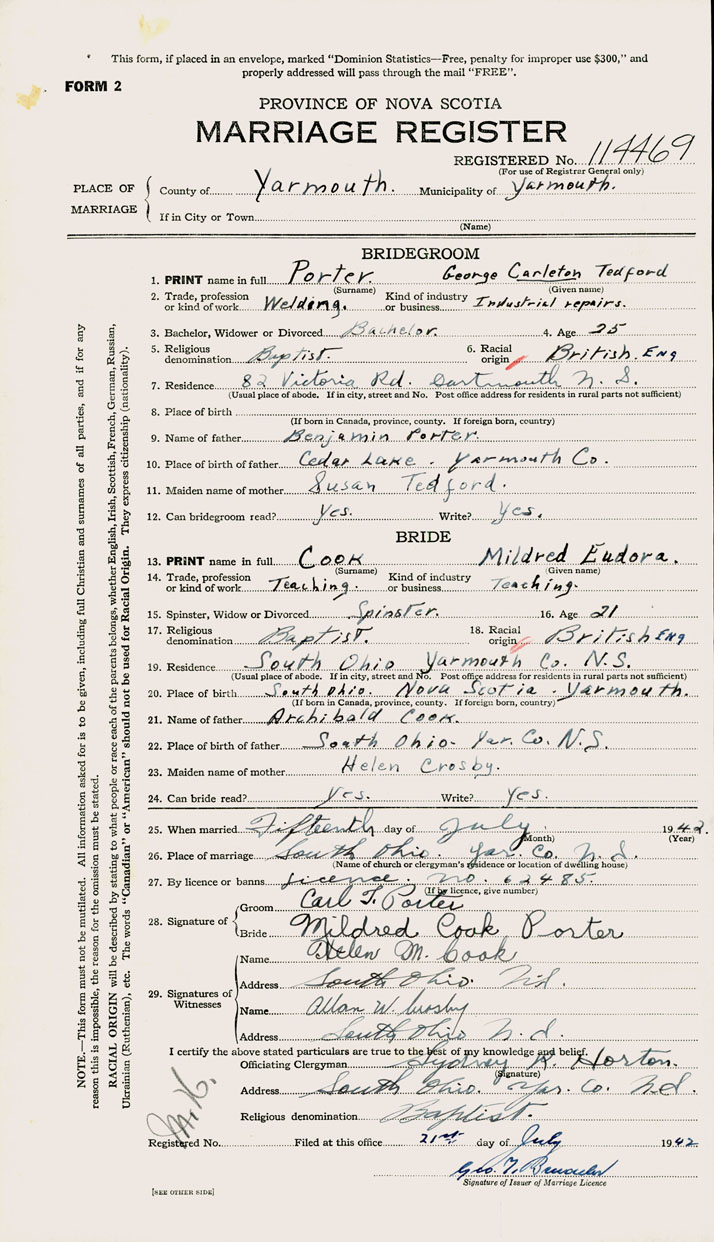 * This form, if placed in an envelope, marked "Dominion Statistics—Free, penalty for improper use $300," and
properly addressed will pass through the mail "FREE".
FORM 2
PROVINCE OF NOVA SCOTIA
MARRIAGE REGISTER
REGISTERED No. 114469
(For use of Registrar General only)
PLACE OF MARRIAGE
County of Yarmouth. Municipality of Yarmouth.
If in City or Town
(Name)
BRIDEGROOM
1. PRINT name in full Porter. George Carleton Tedford
(Surname) (Given name)
2. Trade, profession or kind of work Welding. Kind of industry or business Industrial repairs.
3. Bachelor, Widower or Divorced Bachelor. 4. Age 25
5. Religious denomination Baptist. 6. Racial origin British. ENG
7. Residence 82 Victoria Rd. Dartmouth N. S.
(Usual place of abode. If in city, street and No. Post office address for residents in rural parts not sufficient)
8. Place of birth
(If born in Canada, province, county. If foreign born, country)
9. Name of father Benjamin Porter.
10. Place of birth of father Cedar Lake. Yarmouth Co.
11. Maiden name of mother Susan Tedford.
12. Can bridegroom read? Yes. Write? Yes.
BRIDE
13. PRINT name in full Cook Mildred Eudora.
(Surname) (Given name)
14. Trade, profession or kind of work Teaching. Kind of industry or business Teaching.
15. Spinster, Widow or Divorced Spinster. 16. Age 21
17. Religious denomination Baptist. 18. Racial origin British ENG
19. Residence South Ohio Yarmouth Co. N.S.
(Usual place of abode. If in city, street and No. Post office address for residents in rural parts not sufficient)
20. Place of birth South Ohio. Nova Scotia - Yarmouth.
(If born in Canada, province, county. If foreign born, country)
21. Name of father Archibald Cook.
22. Place of birth of father South Ohio- Yar. Co. N.S.
23. Maiden name of mother Helen Crosby.
24. Can bride read? Yes. Write? Yes.
25. When married Fifteenth day of July 1942.
(Month) (Year)
26. Place of marriage South Ohio. Yar. Co. N.S.
(Name of church or clergyman's residence or location of dwelling house)
27. By licence or banns Licence. No. 62485.
(If by licence, give number)
28. Signature of
Groom Carl T. Porter
Bride Mildred Cook Porter
29. Signatures of Witnesses
Name Helen M. Cook
Address South Ohio. N.S.
Name Allan W. Crosby
Address South Ohio N.S.
I certify the above stated particulars are true to the best of my knowledge and belief.
Officiating Clergyman Sydney A. Horton.
(Signature)
Address South Ohio. Yar. Co. N.S.
Religious denomination Baptist.
Registered No. Filed at this office 21st day of July 1942
Geo. T.
Signature of Issuer of Marriage Licence
[SEE OTHER SIDE]
NOTE.—This form must not be mutilated. All information asked for is to be given, including full Christian and surnames of all parties, and if for any
reason this is impossible, the reason for the omission must be stated.
RACIAL ORIGIN will be described by stating to what people or race each of the parents belongs, whether English, Irish, Scottish, French, German, Russian,
Ukrainian (Ruthenian), etc. The words "Canadian" or "American" should not be used for Racial Origin. They express citizenship (nationality).